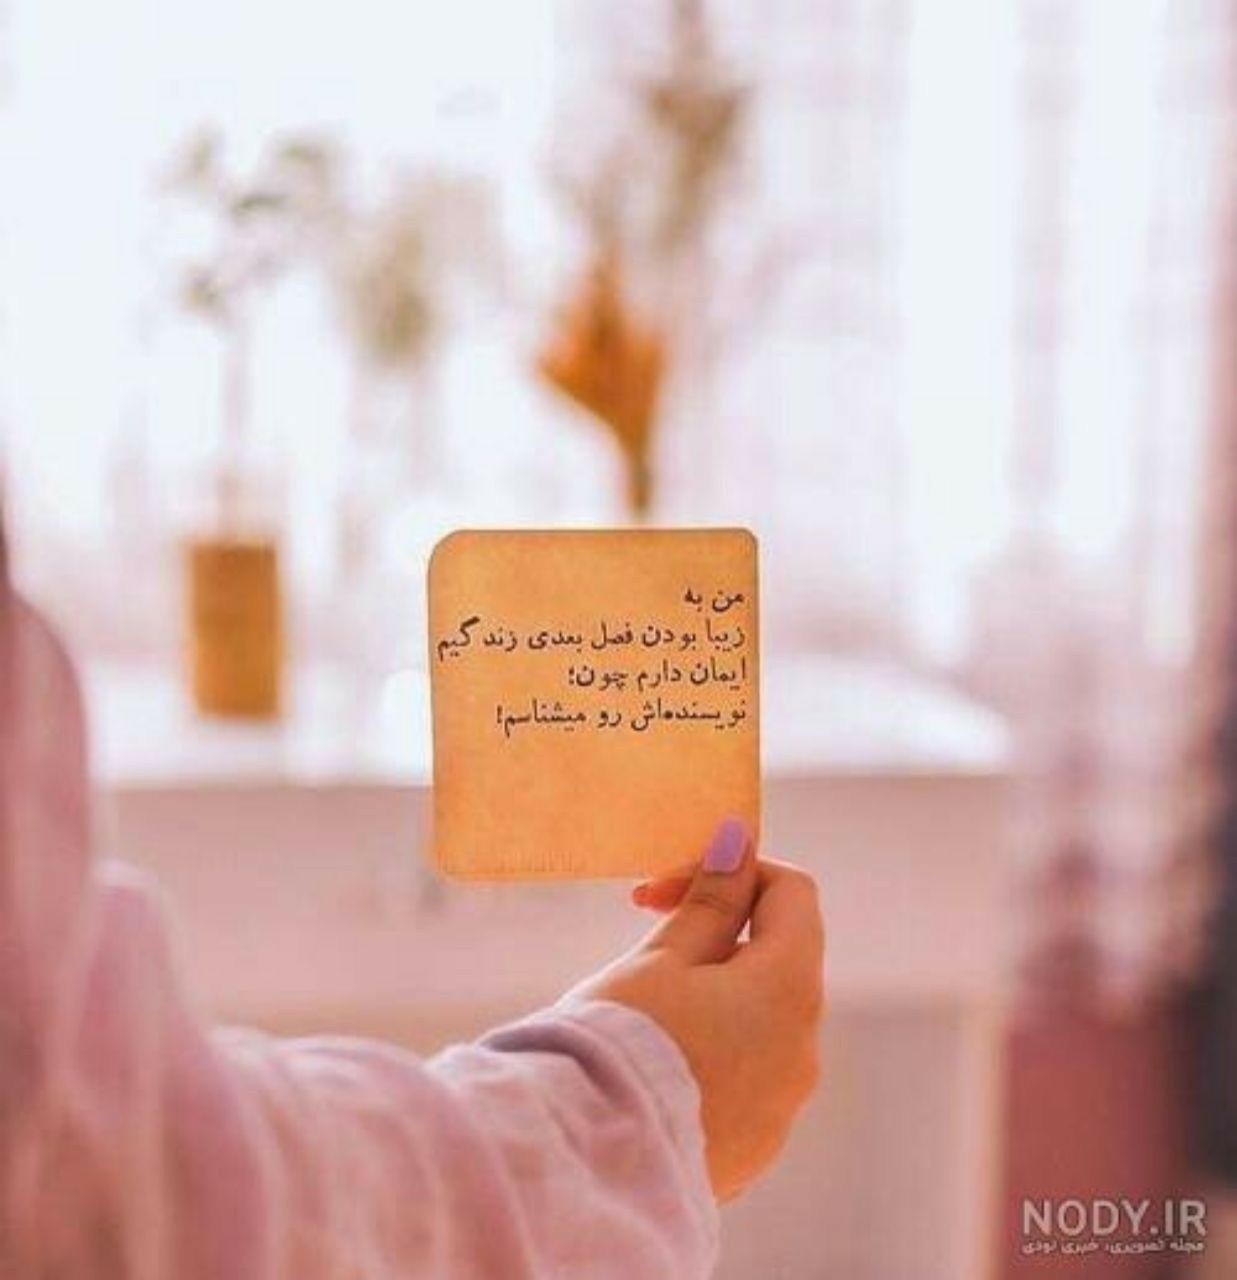 من به
زیبا بودن فصل بعدی زندگیم
ایمان دارم چون؛
نویسنده‌اش رو میشناسم!
NODY.IR
مجله تصویری، خبری نودی